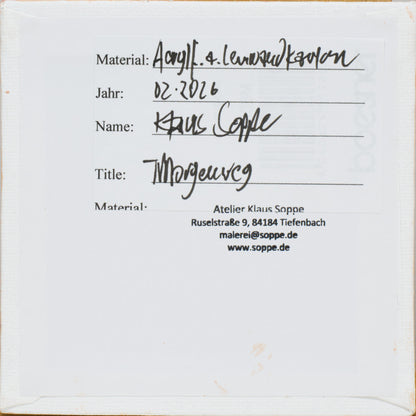 Material: Acryl f. a. Leinwandkarton
Jahr: 02.2026
Name: Klaus Soppe
Title: Morgenweg
Material:
Atelier Klaus Soppe
Ruselstraße 9, 84184 Tiefenbach
malerei@soppe.de
www.soppe.de